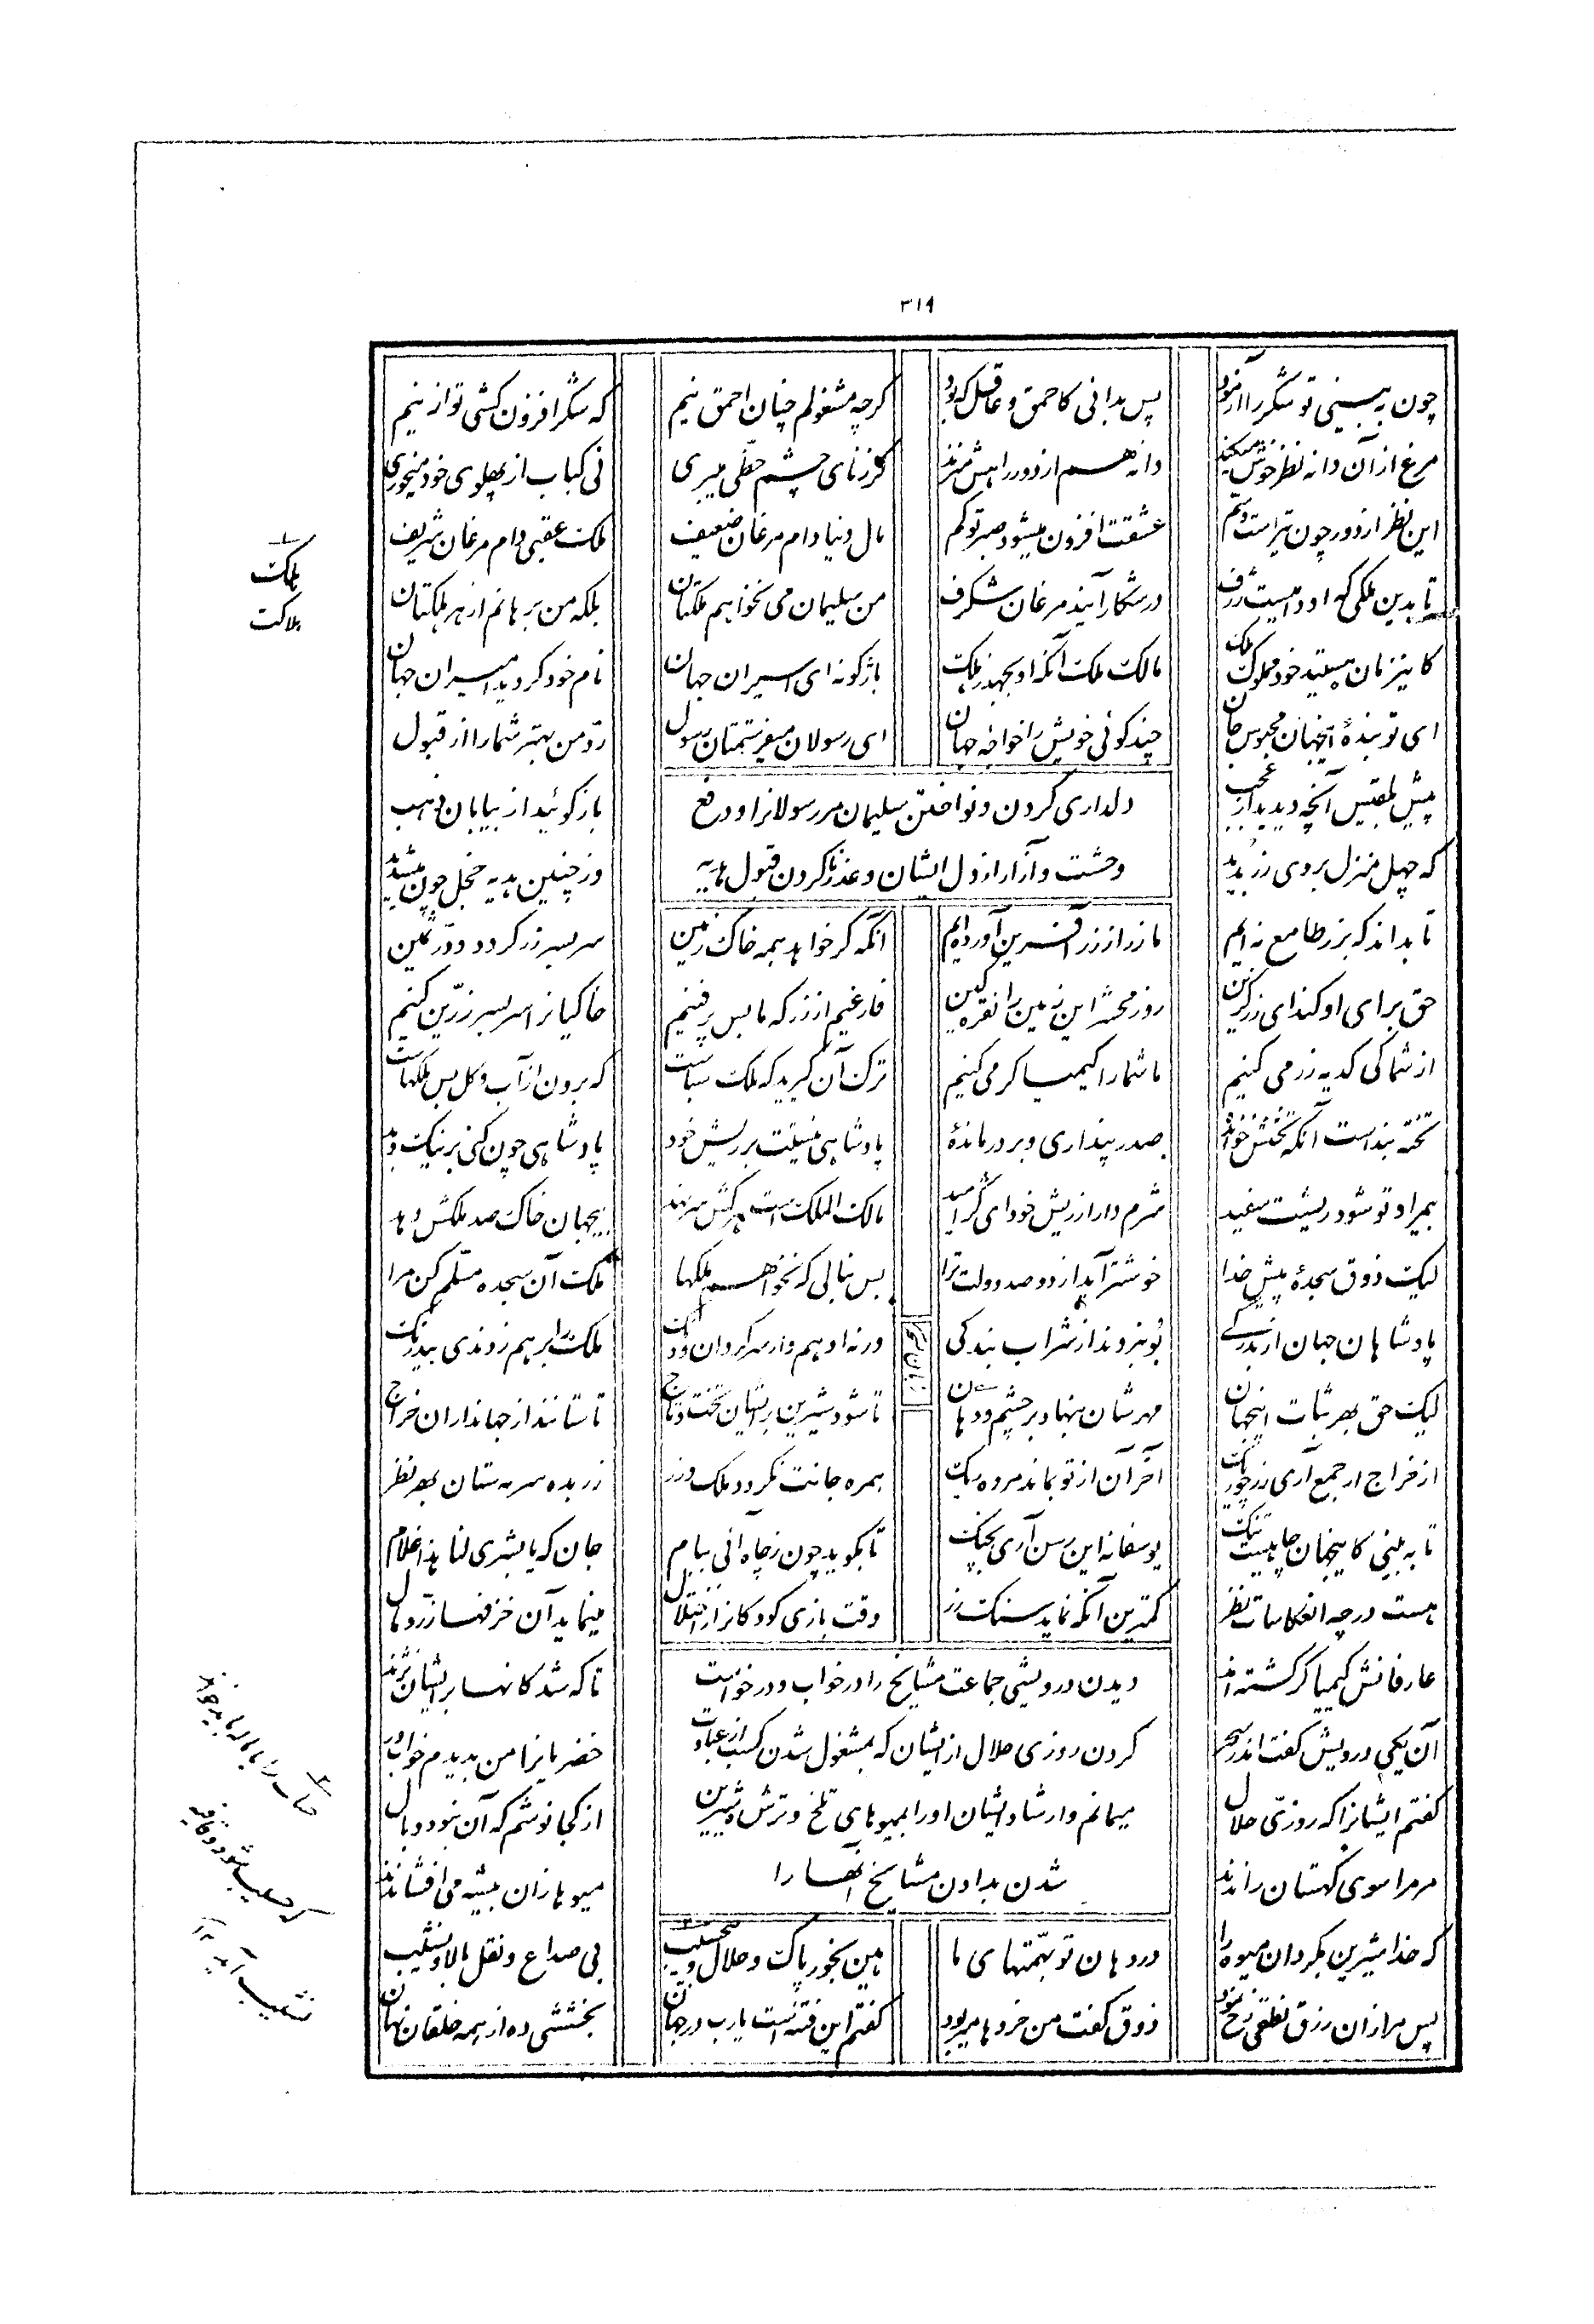 ۳۱۹
چون به ببینی تو شکر را آزمود پس بدانی کاحمق و غافل که بود گرچه مشغولم چنان احمق نیم که شکر افزون کشی تو از نیم
مرغ از آن دانه نظر خوش میکند دانه هم از دور راهش میزند کز زنای چشم حظّی میبری نی کباب از پهلوی خود میخوری
این نظر از دور چون تیر است و سم عشقت افزون میشود صبر تو کم مال دنیا دام مرغان ضعیف ملکت عقبی دام مرغان شریف
تا بدین ملکی که او دامیست ژرف در شکار آیند مرغان شگرف من سلیمان می نخواهم ملکتان بلکه من برهانم از هر هلکتان
کاینزمان هستید خود مملوک ملک مالک ملکت آنکه او بجهد ز هلک باژگونه ای اسیران جهان نام خود کردید امیران جهان
ای تو بندهٔ اینجهان محبوس جان چند گوئی خویش را خواجه جهان ای رسولان میفرستمتان رسول ردّ من بهتر شما را از قبول
دلداری کردن و نواختن سلیمان مر رسولانرا و دفع
وحشت و آزار از دل ایشان و عذر ناکردن قبول هدیه
پیش بلقیس آنچه دیدید از عجب باز گوئید از بیابان ذهب
که چهل منزل بروی زر بدید وز چنین هدیه خجل چون میشدید
تا بداند که بزر طامع نه‌ایم ما زر از زر آفرین آورده‌ایم آنکه گر خواهد همه خاک زمین سربسر زر گردد و درّ ثمین
حق برای او کند ای زرگزین روز محشر این زمین را نقره‌گین فارغیم از زر که ما بس پرفنیم خاکیانرا سربسر زرّین کنیم
از شما کی کدیه زر می کنیم ما شما را کیمیاگر می کنیم ترک آن گیرید گر ملک سباست که برون از آب و گل بس ملکهاست
تخته بند است آنکه تختش خوانده صدر پنداری و بر در ماندهٔ پادشاهی نیستت بر ریش خود پادشاهی چون کنی بر نیک و بد
بیمراد تو شود ریشت سفید شرم دار از ریش خود ای کژ امید مالک الملک است هر کش سر نهد بیجهان خاک صد ملکش دهد
لیک ذوق سجدهٔ پیش خدا خوشتر آید از دو صد دولت ترا پس بنالی که نخواهم ملکها ملکت آن سجده مسلّم کن مرا
پادشاهان جهان از بدرگی بو نبردند از شراب بندگی ورنه ادهم وار سرگردان و دنگ ملک را برهم زدندی بیدرنگ
لیک حق بهر ثبات اینجهان مهرشان بنهاد بر چشم و دهان تا شود شیرین بر ایشان تخت و تاج تا ستانند از جهانداران خراج
از خراج ار جمع آری زر چو ریگ آخر آن از تو بماند مرده ریگ همره جانت نگردد ملک و زر زر بده سرمه ستان بهر نظر
تا به بینی کاینجهان چاهیست تنگ یوسفانه این رسن آری بچنگ تا بگوید چون ز چاه آئی ببام جان که یا بشری لنا هذا غلام
هست در چه انعکاسات نظر کمترین آنکه نماید سنگ زر وقت بازی کودکانرا ز اختلال مینماید آن خزفها زرّ و مال
دیدن درویشی جماعت مشایخ را در خواب و درخواست
کردن روزی حلال از ایشان که بمشغول شدن کسب از عبادت
میمانم و ارشاد ایشان او را بمیوهای تلخ و ترش و شیرین
شدن بدادن مشایخ آنها را
عارفانش کیمیاگر گشته‌اند تا که شد کانها بر ایشان نژند
آن یکی درویش گفت اندر سمر خضریانرا من بدیدم خواب در
گفتم ایشانرا که روزیّ حلال از کجا نوشم که آن نبود وبال
مر مرا سوی کهستان راندند میوها زان بیشه می افشاندند
که خدا شیرین بکرد آن میوه را در دهان تو بهمّتهای ما هین بخور پاک و حلال و بیحسیب بی صداع و نقل بالا و نشیب
پس مرا زان رزق نطقی رخ نمود ذوق گفت من خردها میربود گفتم این فتنه است یارب در جهان بخششی ده از همه خلقان نهان
هلکت
هلاکت